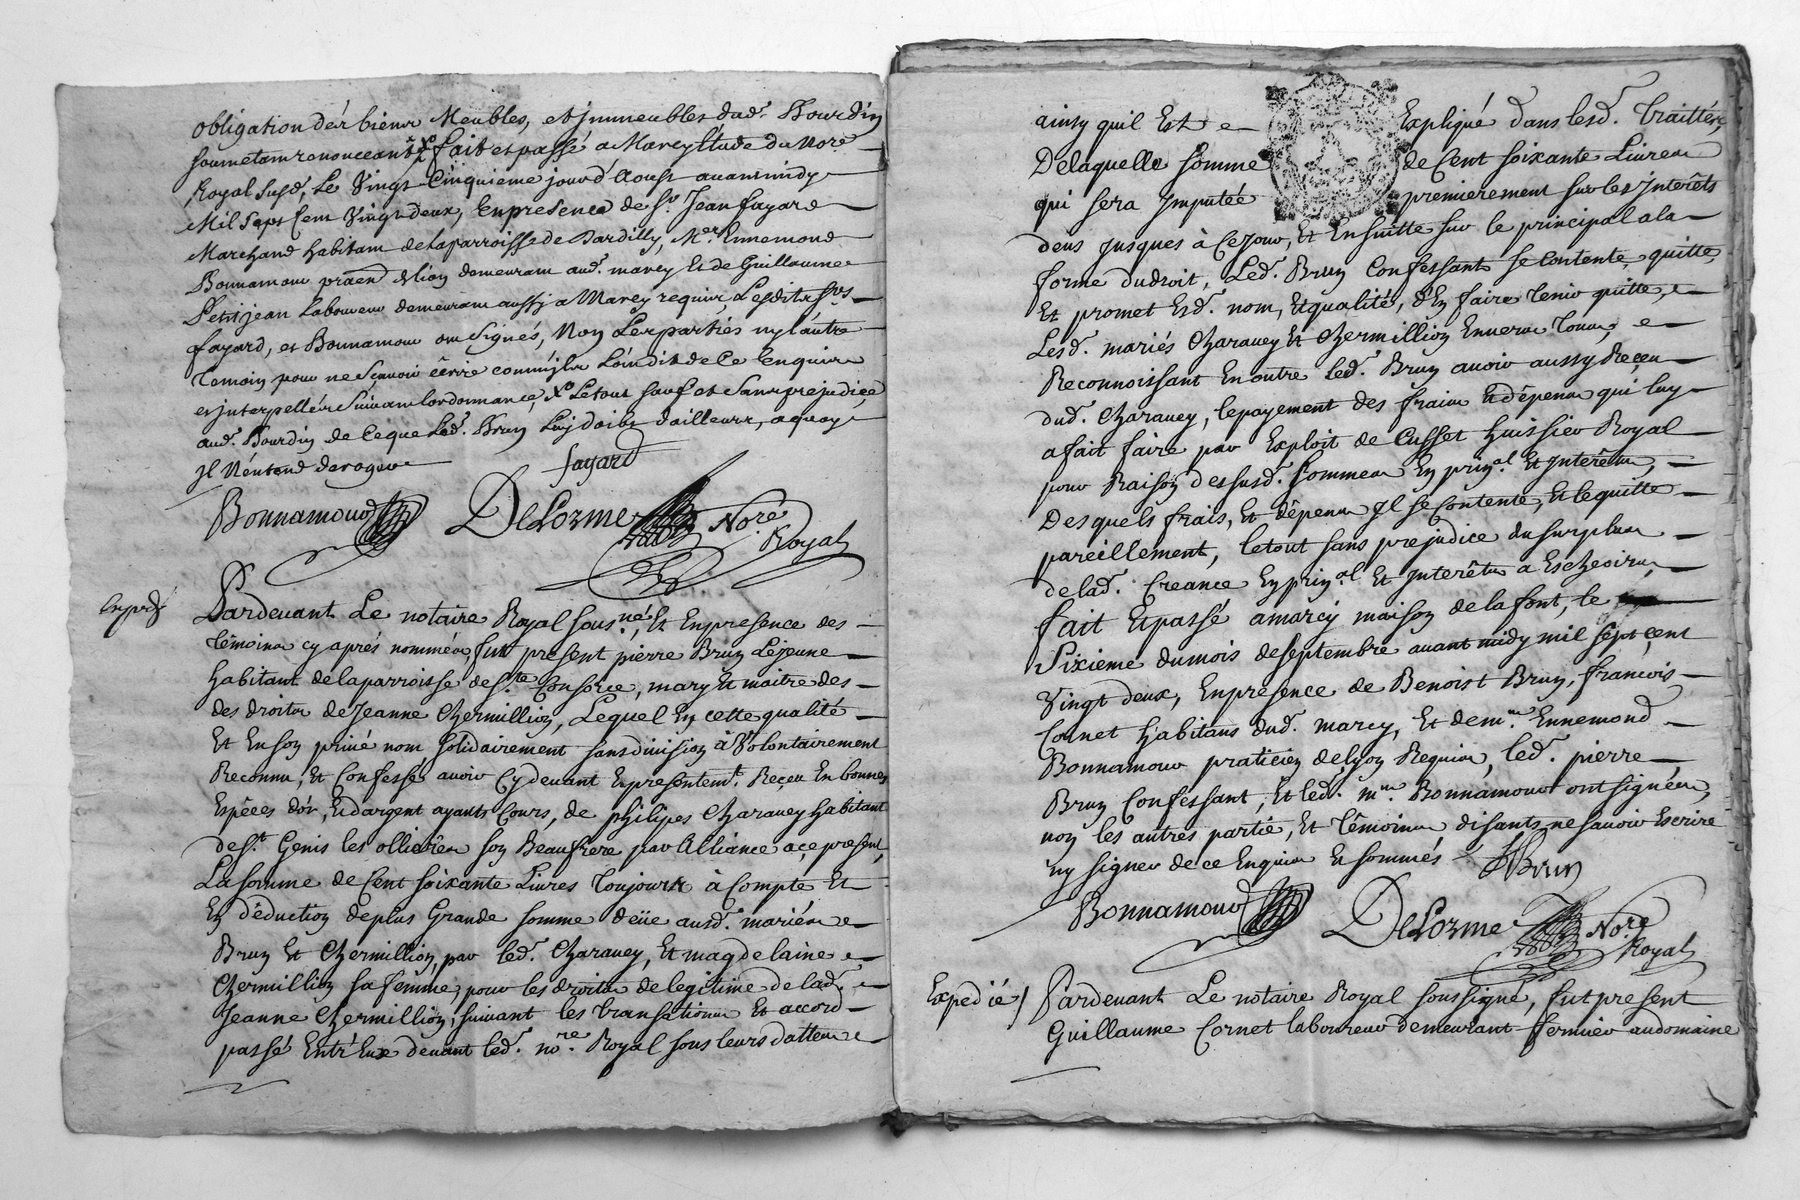 obligation des biens Meubles, et jmmeubles dud.r Bourdin
soumettans renonceants x fait et passé a Marcy l'étude du No.re
Royal susd.t, Le Vingt-Cinquieme jour d'Aoust avant midy
Mil Sept Cent Vingt deux, En presence de S.r Jean fayard
Marchand habitant de la parroisse de Dardilly, M.e Ennemond
Bonnamour praēn de lion demeurant aud.t marcy Et de Guillaume
Petitjean Laboureur demeurant aussy a Marcy requis, Lesdits S.rs
fayard, et Bonnamour ont Signés, Non Les parties ny l'autre
temoin pour ne Sçavoir êcrire comm'jls L'ont dit de Ce Enquis
et jnterpellés Suivant l'ordonnance, x Le tout sauf et Sans prejudice
aud.t Bourdin de Ce que Led.t Brun Luy doibt d'ailleurs, a quoy
jl N'entend deroger
fayard
Bonnamour
DeLorme No.re
Royal
Exped.é
Pardevant Le notaire Royal sous.né, Et En presence des
têmoins cy aprés nommés, fut present pierre Brun Lejeune
habitant de la parroisse de S.te Consorce, mary Et maitre des
des droits de Jeanne Chermillion, Lequel En cette qualité
Et En son privé nom solidairement sans division à Volontairement
Reconnu, Et Confessé avoir Cy devant Et presentem.t Reçeu En bonnes
Espêces d'or, Et d'argent ayants Cours, de philipes Charavey habitant
de S.t Genis les ollieres son Beaufrere par Alliance a çe present,
La somme de Cent soixante Livres toujours à Compte Et
En dêduction de plus Grande somme dëüe ausd.ts mariés
Brun Et Chermillion, par led.t Charavey, Et magdelaine
Chermillion sa femme, pour les droits de legitime de lad.e
Jeanne Chermillion, suivant les transations Et accord
passé Entr'Eux devant led.t no.re Royal sous leurs dattes
ainsy quil Est Expliqué dans lesd.ts traittés,
De laquelle somme de Cent soixante Livres
qui sera jmputée premierement sur les jnterêts
deus jusques à Ce jour, Et En suitte sur le principal a la
forme du droit, Led.t Brun Confessant se Contente, quitte,
Et promet Esd.t nom, Et qualités, d'En faire tenir quitte,
Lesd.ts mariés Charavey Et Chermillion Envers tous,
Reconnoissant En outre led.t Brun avoir aussy Reçeu
dud.t Charavey, le payement des frais Et dêpens qui luy
a fait faire par Exploit de Cusset huissier Royal
pour Raison des susd.tes sommes En prin.al Et jnterêts,
Des quels frais, Et dêpens jl se Contente, Et le quitte
pareillement, le tout sans prejudice du surplus
de lad.e Creance En prin.al Et jnterêts a Escheoir,
fait Et passé a marcy maison de la font, le
Sixieme du mois de septembre avant midy mil sept cent
Vingt deux, En presence de Benoist Brun, francois
Cornet habitans dud.t marcy, Et de m.re Ennemond
Bonnamour praticien de Lyon Requis, led.t pierre
Brun Confessant, Et led.t m.re Bonnamour ont signés,
non les autres partie, Et têmoins disants ne savoir Escrire
ny signer de ce Enquis Et sommés
PBrun
Bonnamour
DeLorme No.re
Royal
Expedié
Pardevant Le notaire Royal soussigné, fut present
Guillaume Cornet laboureur demeurant fermier au domaine